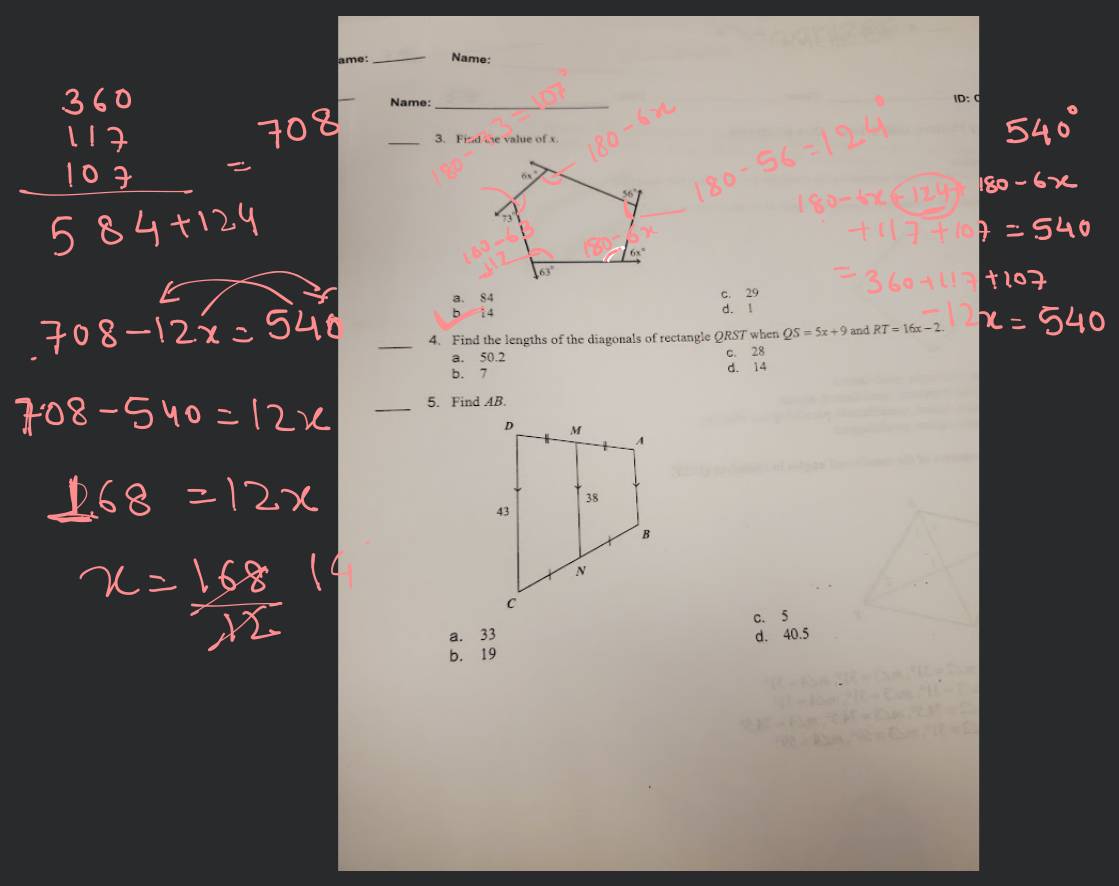 ame: Name:
Name:
ID: C
3. Find the value of x.
6x°
56°
73°
63°
6x°
a. 84
b. 14
c. 29
d. 1
4. Find the lengths of the diagonals of rectangle QRST when QS = 5x + 9 and RT = 16x − 2.
a. 50.2
b. 7
c. 28
d. 14
5. Find AB.
D
M
A
43
38
B
N
C
a. 33
b. 19
c. 5
d. 40.5
180 - 73 = 107°
180 - 6x
180 - 56 = 124°
180 - 6x
540°
180 - 6x + 124 + 180 - 6x
+ 117 + 107 = 540
= 360 + 117 + 107
- 12x = 540
360
117
107
= 708
584 + 124
708 - 12x = 540
708 - 540 = 12x
168 = 12x
x = 168 14
12